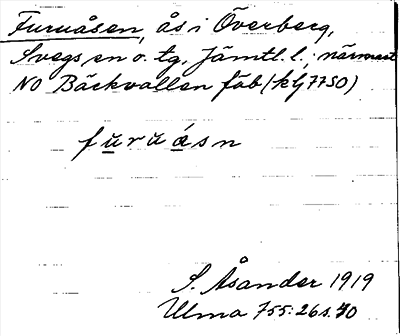 Furuåsen, ås i Överberg,
Svegs sn o. tg, Jämtl. l.; närmast
NO Bäckvallen fäb (kbl 7750)
furuåsn
S. Åsander 1919
Ulma 755:26 s. 70